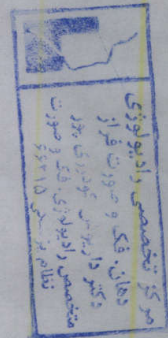 مرکز تخصصی رادیولوژی
دهان، فک و صورت فراز
دکتر داریوش گودرزی پور
متخصص رادیولوژی فک و صورت
نظام پزشکی ۶۶۳۱۵